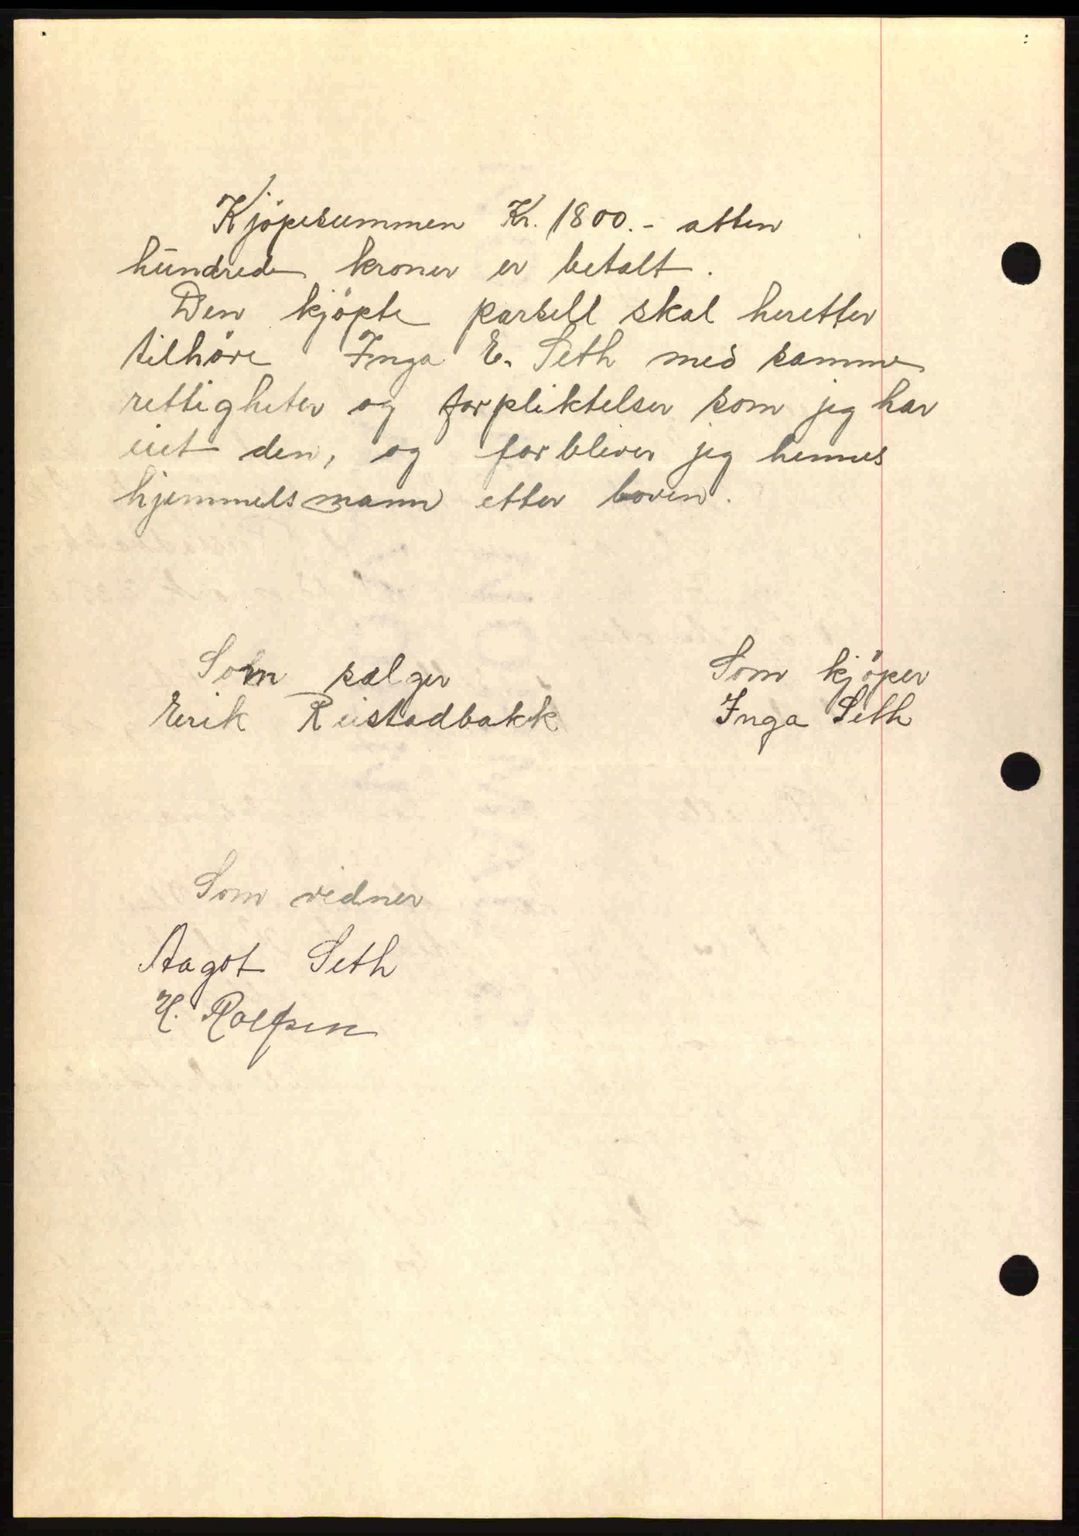 Kjöpesummen Kr. 1800.- atten
hundrede kroner er betalt.
Den kjöpte parsell skal heretter
tilhøre Inga E. Seth med samme
rettigheter og forpliktelser som jeg har
eiet den, og forbliver jeg hennes
hjemmelsmann etter loven.
Som sælger
Som kjöper
Eirik Reistadbakk
Inga Seth
Som vidner
Aagot Seth
H. Rolfsen